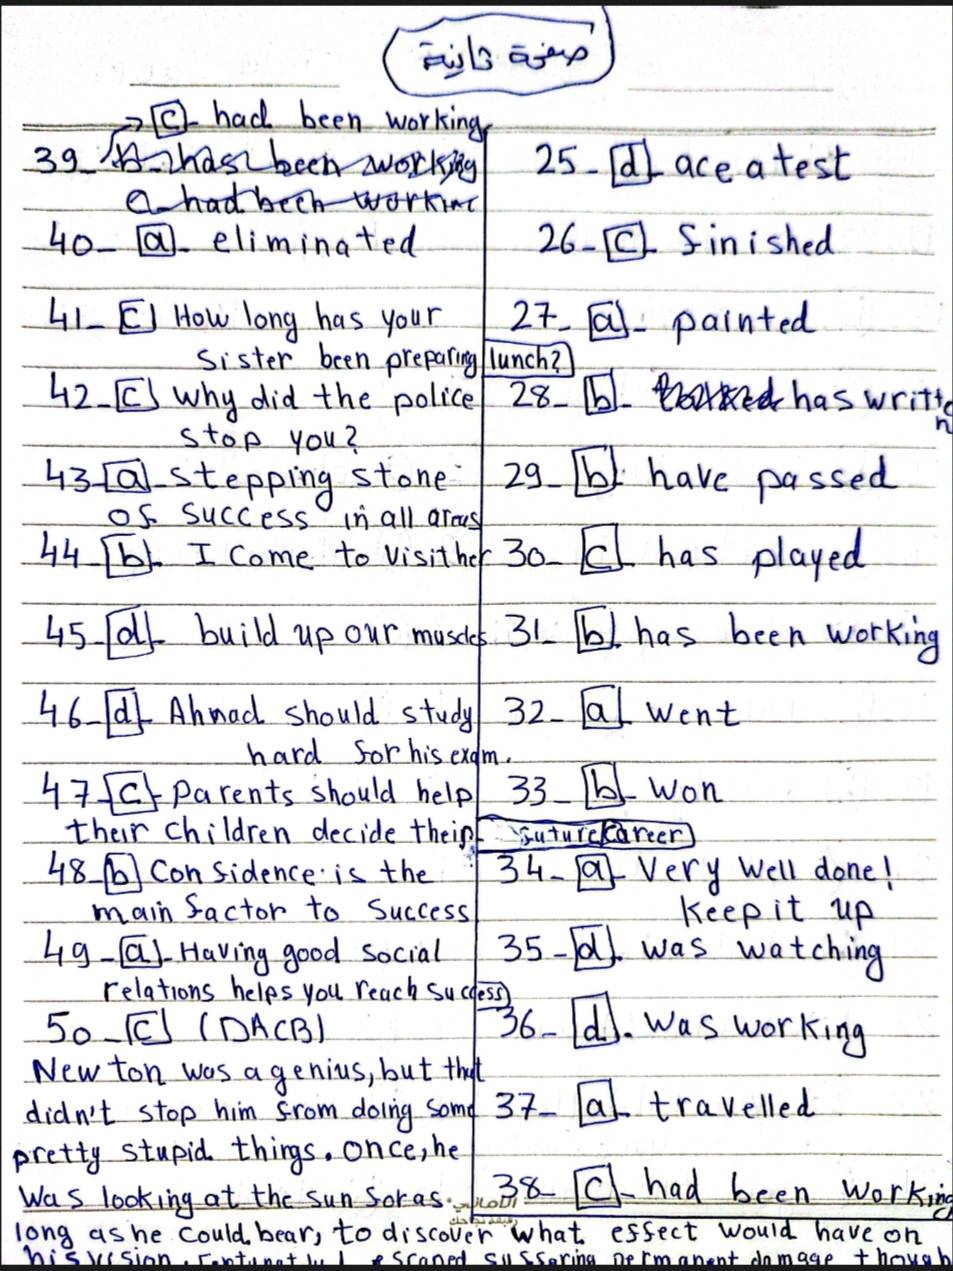 صفحة ثانية
c - had been working
39_ b- has been working
a- had been working
40_ a - eliminated
41_ c How long has your
sister been preparing lunch?
42_ c Why did the police
stop you?
43_ a - stepping stone
of success in all areas
44_ b - I come to visit her
45_ d - build up our muscles
46_ d - Ahmad should study
hard for his exam.
47_ c - Parents should help
their children decide their future career
48_ b Confidence is the
main factor to success
49_ a - Having good social
relations helps you reach success
50_ c (DACB)
Newton was a genius, but that
didn't stop him from doing some
pretty stupid things. once, he
was looking at the sun for as
long as he could bear, to discover what effect would have on
his vision. Fortunately escaped suffering permanent damage though
25_ d - ace a test
26_ c - finished
27_ a - painted
28_ b - has written
29_ b - have passed
30_ c - has played
31_ b - has been working
32_ a - went
33_ b - won
34_ a - Very well done!
Keep it up
35_ d - was watching
36_ d - was working
37_ a - travelled
38_ c - had been working